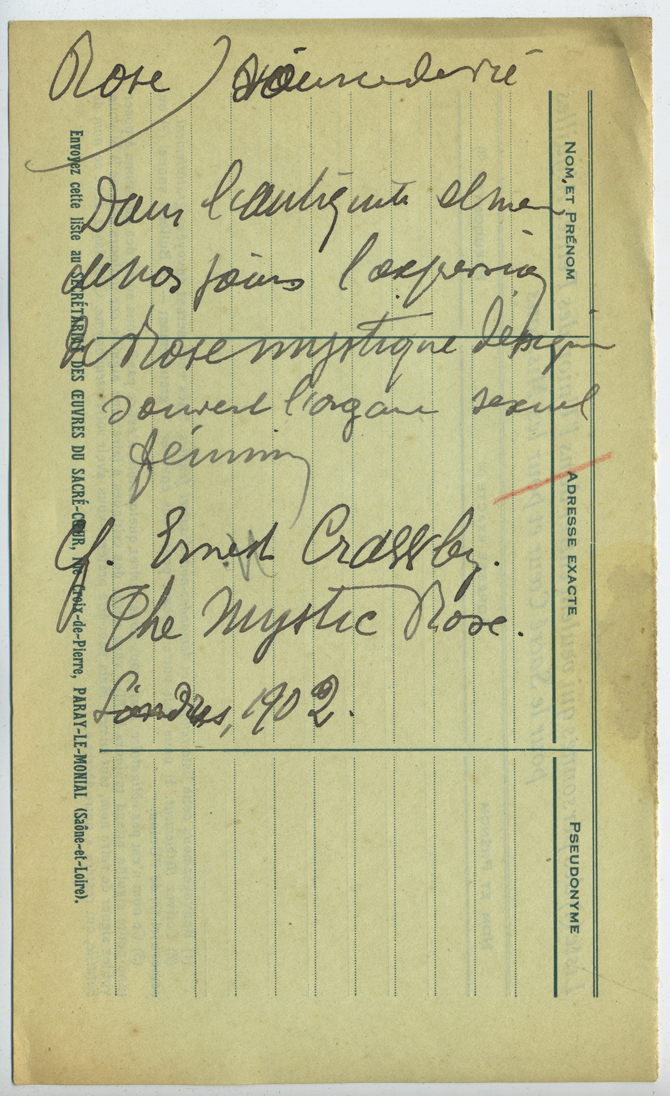 Rose
Dans l'antiquité et même
de nos jours l'expression
de Rose mystique désigne
souvent l'organe sexuel
féminin
cf. Ernest Crassby.
The Mystic Rose.
Londres, 1902.
NOM, ET PRÉNOM
ADRESSE EXACTE
PSEUDONYME
Envoyez cette liste au SECRÉTARIAT DES ŒUVRES DU SACRÉ-CŒUR, Rue Croix-de-Pierre, PARAY-LE-MONIAL (Saône-et-Loire).